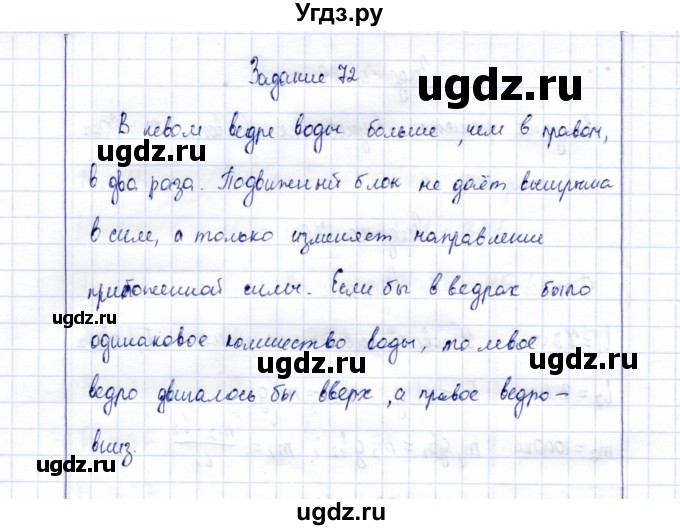 Угдз.ру
Задание 72
ugdz.ru
В левом ведре воды больше, чем в правом,
ugdz.ru
в два раза. Подвижений блок не даёт выигрыша
в силе, а только изменяет направление
приложенной силы. Если бы в ведрах было
ugdz.ru
одинаковое количество воды, то левое
ugdz.ru
ugdz.ru
ведро двигалось бы вверх, а правое ведро –
вниз.
ugdz.ru
ugdz.ru
Угдз.ру